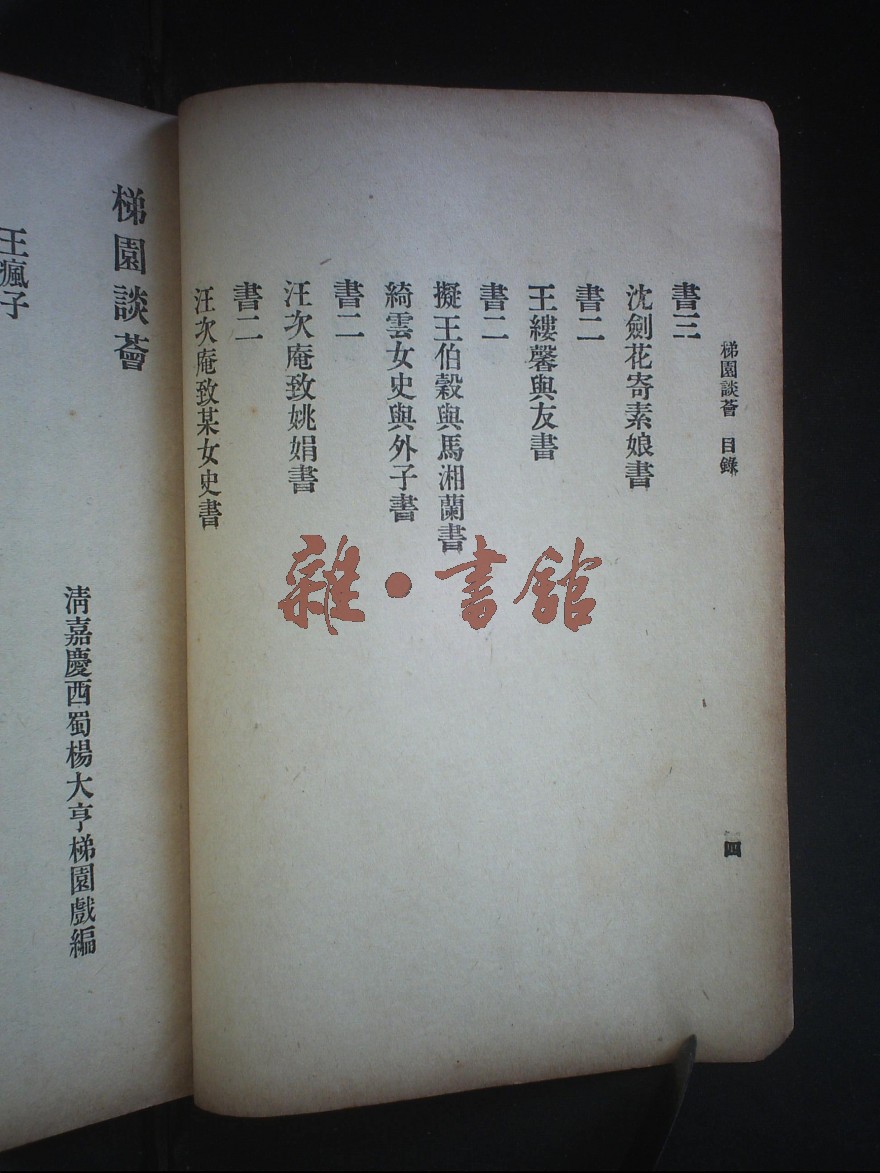 梯園談薈　目錄
書三
沈劍花寄素娘書
書二
王縷馨與友書
書二
擬王伯穀與馬湘蘭書
綺雲女史與外子書
書二
汪次庵致姚娟書
書二
汪次庵致某女史書
四
雜·書館
梯園談薈
清嘉慶西蜀楊大亨梯園戲編
王瘋子